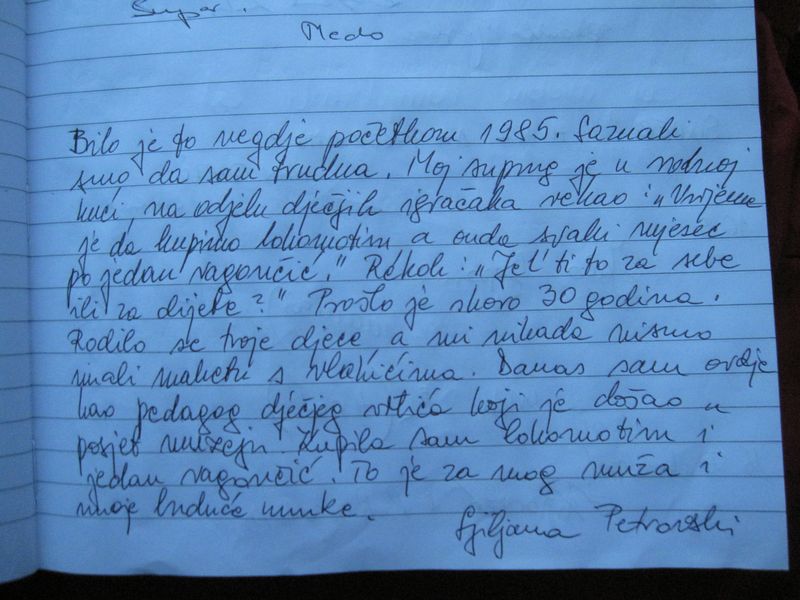 Super.
Medo
Bilo je to negdje početkom 1985. Saznali
smo da sam trudna. Moj suprug je u robnoj
kući, na odjelu dječjih igračaka rekao: „Vrijeme
je da kupimo lokomotivu a onda svaki mjesec
po jedan vagončić." Rekoh: „Jel' ti to za sebe
ili za dijete?" Prošlo je skoro 30 godina.
Rodilo se troje djece, a mi nikada nismo
imali maketu s vlakićima. Danas sam ovdje
kao pedagog dječjeg vrtića koji je došao u
posjet muzeju. Kupila sam lokomotivu i
jedan vagončić. To je za mog muža i
moje buduće unuke.
Ljiljana Petrovski